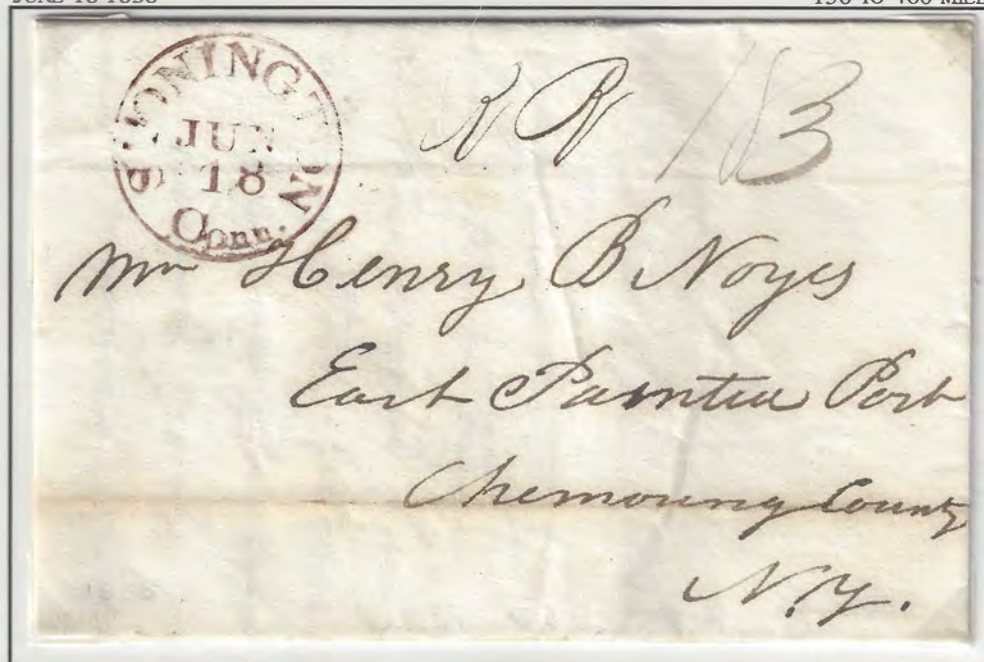 JUNE 18
150 TO 400
STONINGTON
JUN
18
Conn.
R R 183
Mr Henry B Noyes
East Painted Post
Chemoung County
N.Y.